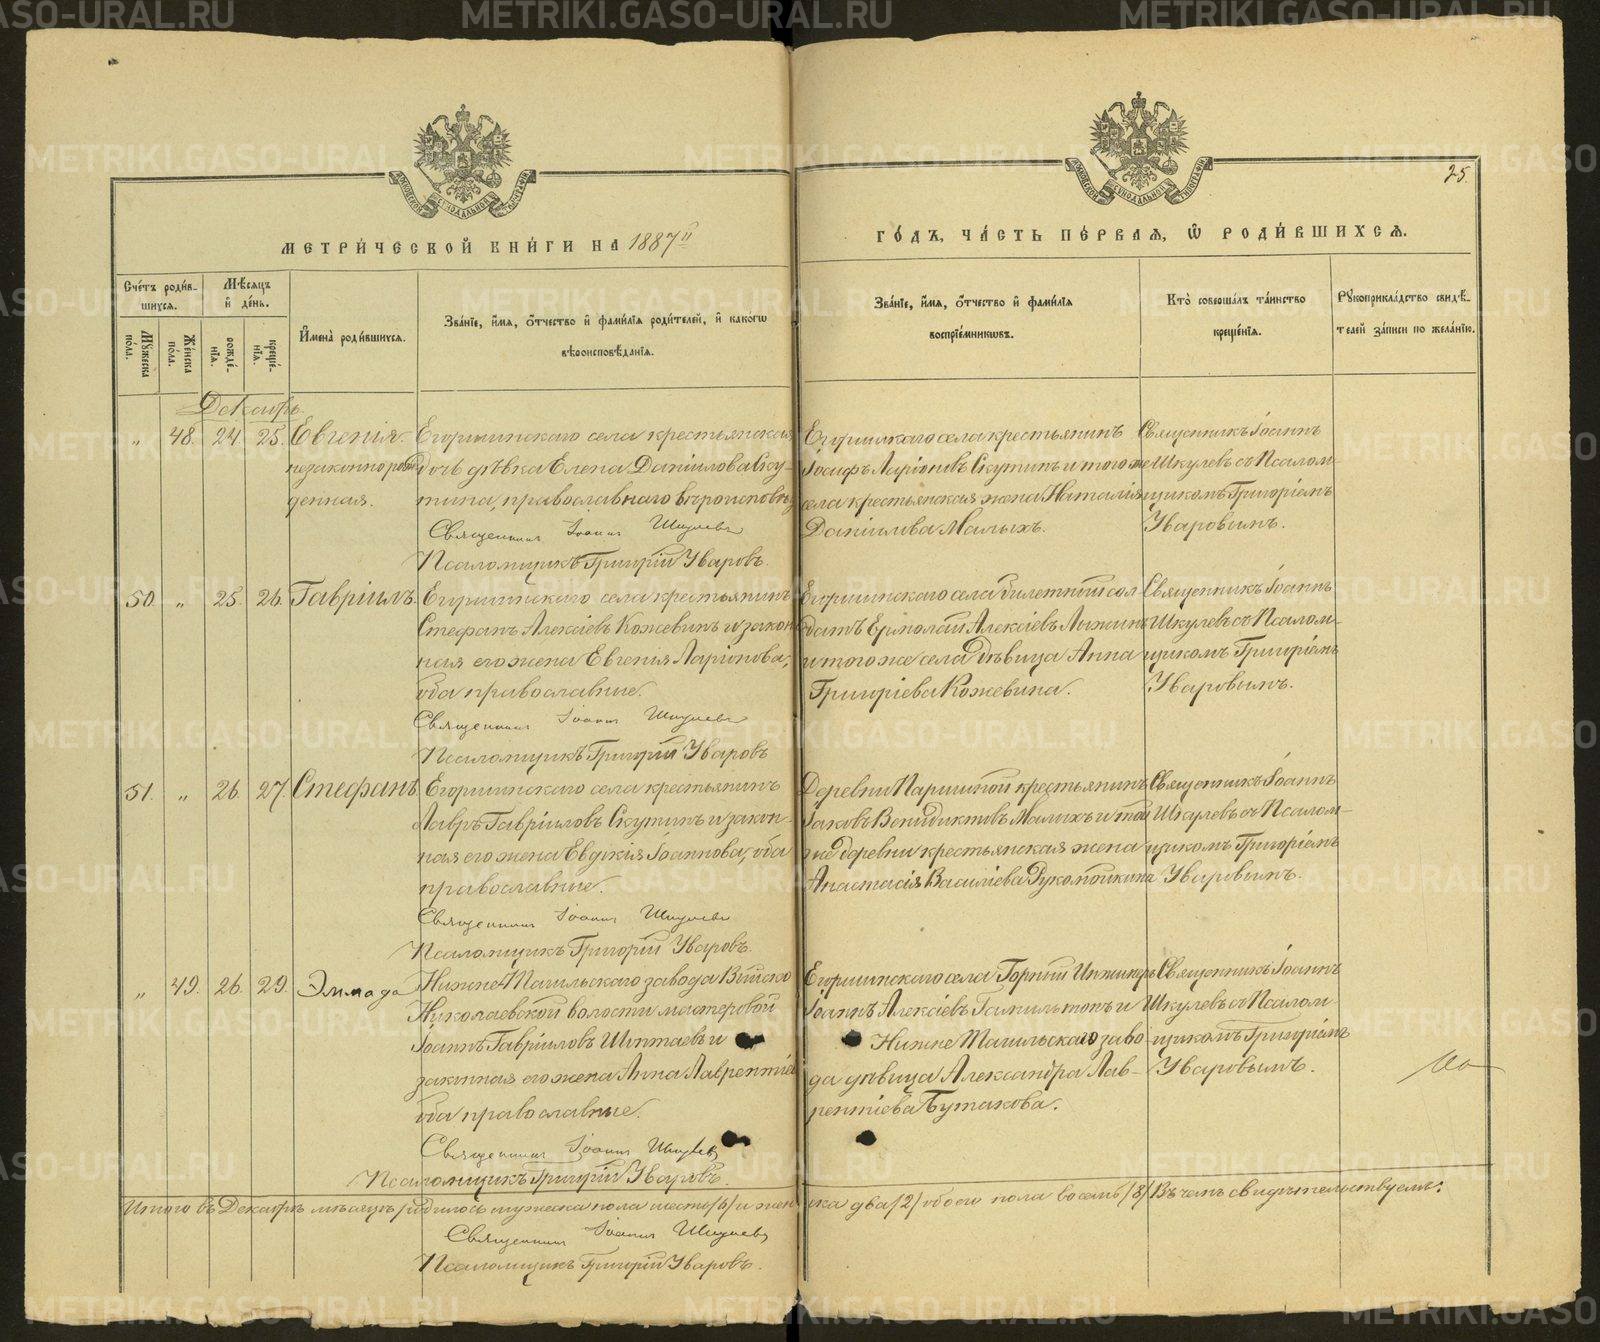 25.
МЕТРИЧЕСКОЙ КНИГИ НА 1887й
ГОДЪ, ЧАСТЬ ПЕРВАЯ, Ѡ РОДИВШИХСЯ.
Счетъ родившихся.
Мужеска пола.
Женска пола.
Мѣсяцъ и день.
рожденія.
крещенія.
Имена родившихся.
Званіе, имя, отчество и фамилія родителей, и какого
вѣроисповѣданія.
Званіе, имя, отчество и фамилія
воспріемниковъ.
Кто совершалъ таинство
крещенія.
Рукоприкладство свидѣ-
телей записи по желанію.
Декабрь.
„ 48. 24. 25. Евгенія
незаконнорож
денная.
Егоршинскаго села крестьянская
дочь дѣвка Елена Даніилова Ску-
тина, православнаго вѣроисповѣд
Священникъ Іоаннъ Шкулевъ
Псаломщикъ Григорій Уваровъ.
Егоршинскаго села крестьянинъ
Іосифъ Ларіоновъ Скутинъ и того же
села крестьянская жена Наталія
Даніилова Малыхъ.
Священникъ Іоаннъ
Шкулевъ съ Псалом-
щикомъ Григоріемъ
Уваровымъ.
50. „ 25. 26. Гавріилъ.
Егоршинскаго села крестьянинъ
Стефанъ Алексіевъ Кожевинъ и закон
ная его жена Евгенія Ларіонова,
оба православные.
Священникъ Іоаннъ Шкулевъ
Псаломщикъ Григорій Уваровъ
Егоршинскаго села билетный сол
датъ Ермолай Алексіевъ
и того же села дѣвица Анна
Григоріева Кожевина.
Священникъ Іоаннъ
Шкулевъ съ Псалом-
щикомъ Григоріемъ
Уваровымъ.
51. „ 26. 27. Стефанъ
Егоршинскаго села крестьянинъ
Лавръ Гавріиловъ Скутинъ и закон-
ная его жена Евдокія Іоаннова, оба
православные.
Священникъ Іоаннъ Шкулевъ
Псаломщикъ Григорій Уваровъ.
Деревни Паршиной крестьянинъ
Іаковъ Венидиктовъ Малыхъ и той
же деревни крестьянская жена
Анастасія Василіева Рукомойкина
Священникъ Іоаннъ
Шкулевъ съ Псалом-
щикомъ Григоріемъ
Уваровымъ.
„ 49. 26. 29.
Нижне-Тагильскаго завода Выйско
Николаевской волости мастеровой
Іоаннъ Гавріиловъ и
законная его жена Анна Лаврентіева
оба православные.
Священникъ Іоаннъ Шкулевъ
Псаломщикъ Григорій Уваровъ.
Егоршинскаго села Горный Инжинеръ
Іоаннъ Алексіевъ Гамильтонъ и
Нижне Тагильскаго заво-
да дѣвица Александра Лав-
рентіева Бутакова.
Священникъ Іоаннъ
Шкулевъ съ Псалом-
щикомъ Григоріемъ
Уваровымъ.
Итого въ Декабрѣ мѣсяцѣ родилось мужеска пола шесть /6/ и жен
ска два /2/ обоего пола восемь /8/ Въ чемъ свидѣтельствуемъ:
Священникъ Іоаннъ Шкулевъ
Псаломщикъ Григорій Уваровъ.
METRIKI.GASO-URAL.RU